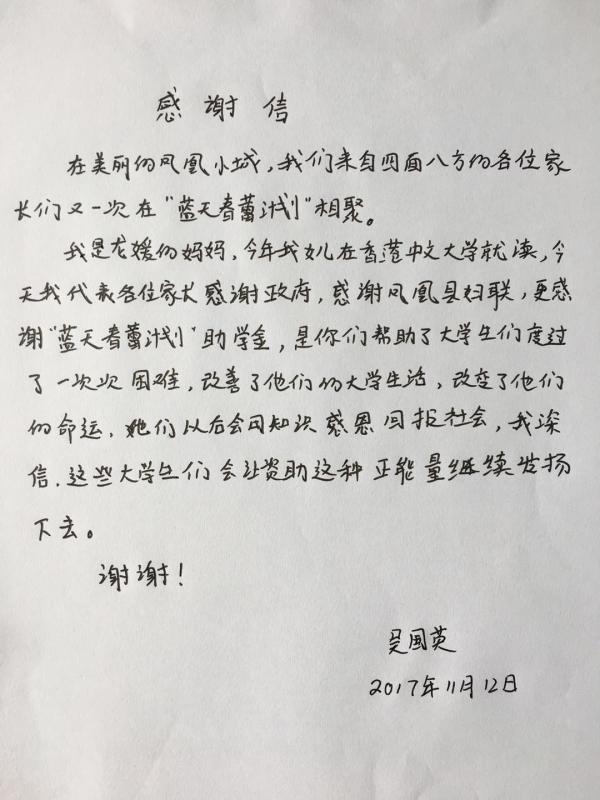 感谢信
在美丽的凤凰小城，我们来自四面八方的各位家
长们又一次在"蓝天春蕾计划"相聚。
我是龙媛的妈妈，今年我女儿在香港中文大学就读，今
天我代表各位家长感谢政府，感谢凤凰县妇联，更感
谢"蓝天春蕾计划"助学金，是你们帮助了大学生们度过
了一次次困难，改善了他们的大学生活，改变了他们
的命运，她们以后会用知识感恩回报社会，我深
信，这些大学生们会让资助这种正能量继续发扬
下去。
谢谢！
吴国英
2017年11月12日